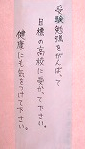 受験勉強をがんばって
目標の高校に受かって下さい。
健康にも気をつけて下さい。